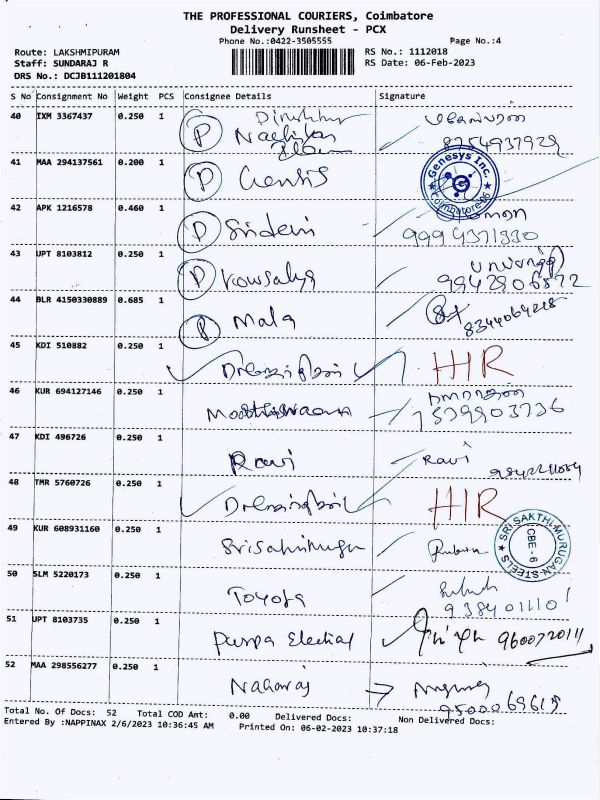 THE PROFESSIONAL COURIERS, Coimbatore
Delivery Runsheet - PCX
Phone No.:0422-3505555 Page No.:4
Route: LAKSHMIPURAM RS No.: 1112018
Staff: SUNDARAJ R RS Date: 06-Feb-2023
DRS No.: DCJB111201804
S No Consignment No Weight PCS Consignee Details Signature
40 IXM 3367437 0.250 1 P
8754937929
41 MAA 294137561 0.200 1 P Genesys Inc. Coimbatore
42 APK 1216578 0.460 1 P Sridevi
9994371330
43 UPT 8103812 0.250 1 P Kowsalya
9942906572
44 BLR 4150330889 0.685 1 P Mala
8344064218
45 KDI 510882 0.250 1 HIR
46 KUR 694127146 0.250 1
7529903736
47 KDI 496726 0.250 1 Ravi Ravi
48 TMR 5760726 0.250 1 HIR
49 KUR 608931160 0.250 1 SRI SAKTHI MURUGAN STEELS CBE - 6
50 SLM 5220173 0.250 1 Toyota
9384011101
51 UPT 8103735 0.250 1 Puspa Electrical
52 MAA 298556277 0.250 1 Nagaraj
9500069619
Total No. Of Docs: 52 Total COD Amt: 0.00 Delivered Docs: Non Delivered Docs:
Entered By :NAPPINAX 2/6/2023 10:36:45 AM Printed On: 06-02-2023 10:37:18